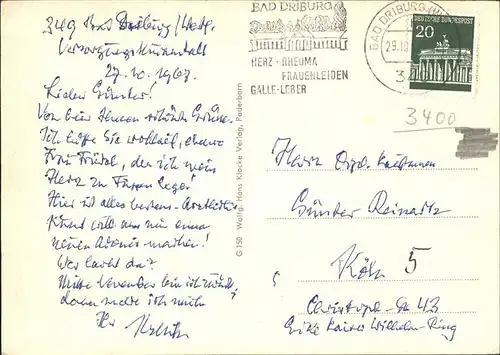 349 Bad Driburg/Westf.
Versorgungskuranstalt
27.10.1967
Lieber Günter!
Von hier Ihnen Grüße.
Ich hoffe Sie wohlauf, ebenso
Frau Friedel, der ich mein
Herz zu Füssen lege.
Hier ist alles bestens.
Kunst will aus mir einen
neuen Adonis machen!
Wer lacht da?
Mitte November bin ich zurück,
dann melde ich mich
Ihr
G 150 Wolfg. Hans Klocke Verlag, Paderborn
BAD DRIBURG
HERZ · RHEUMA
FRAUENLEIDEN
GALLE · LEBER
BAD DRIBURG
29.10
3
DEUTSCHE BUNDESPOST
20
3400
Herrn Dipl. Kaufmann
Günter Reinartz
5 Köln 5
Christoph-Str 43
Ecke Kaiser Wilhelm-Ring